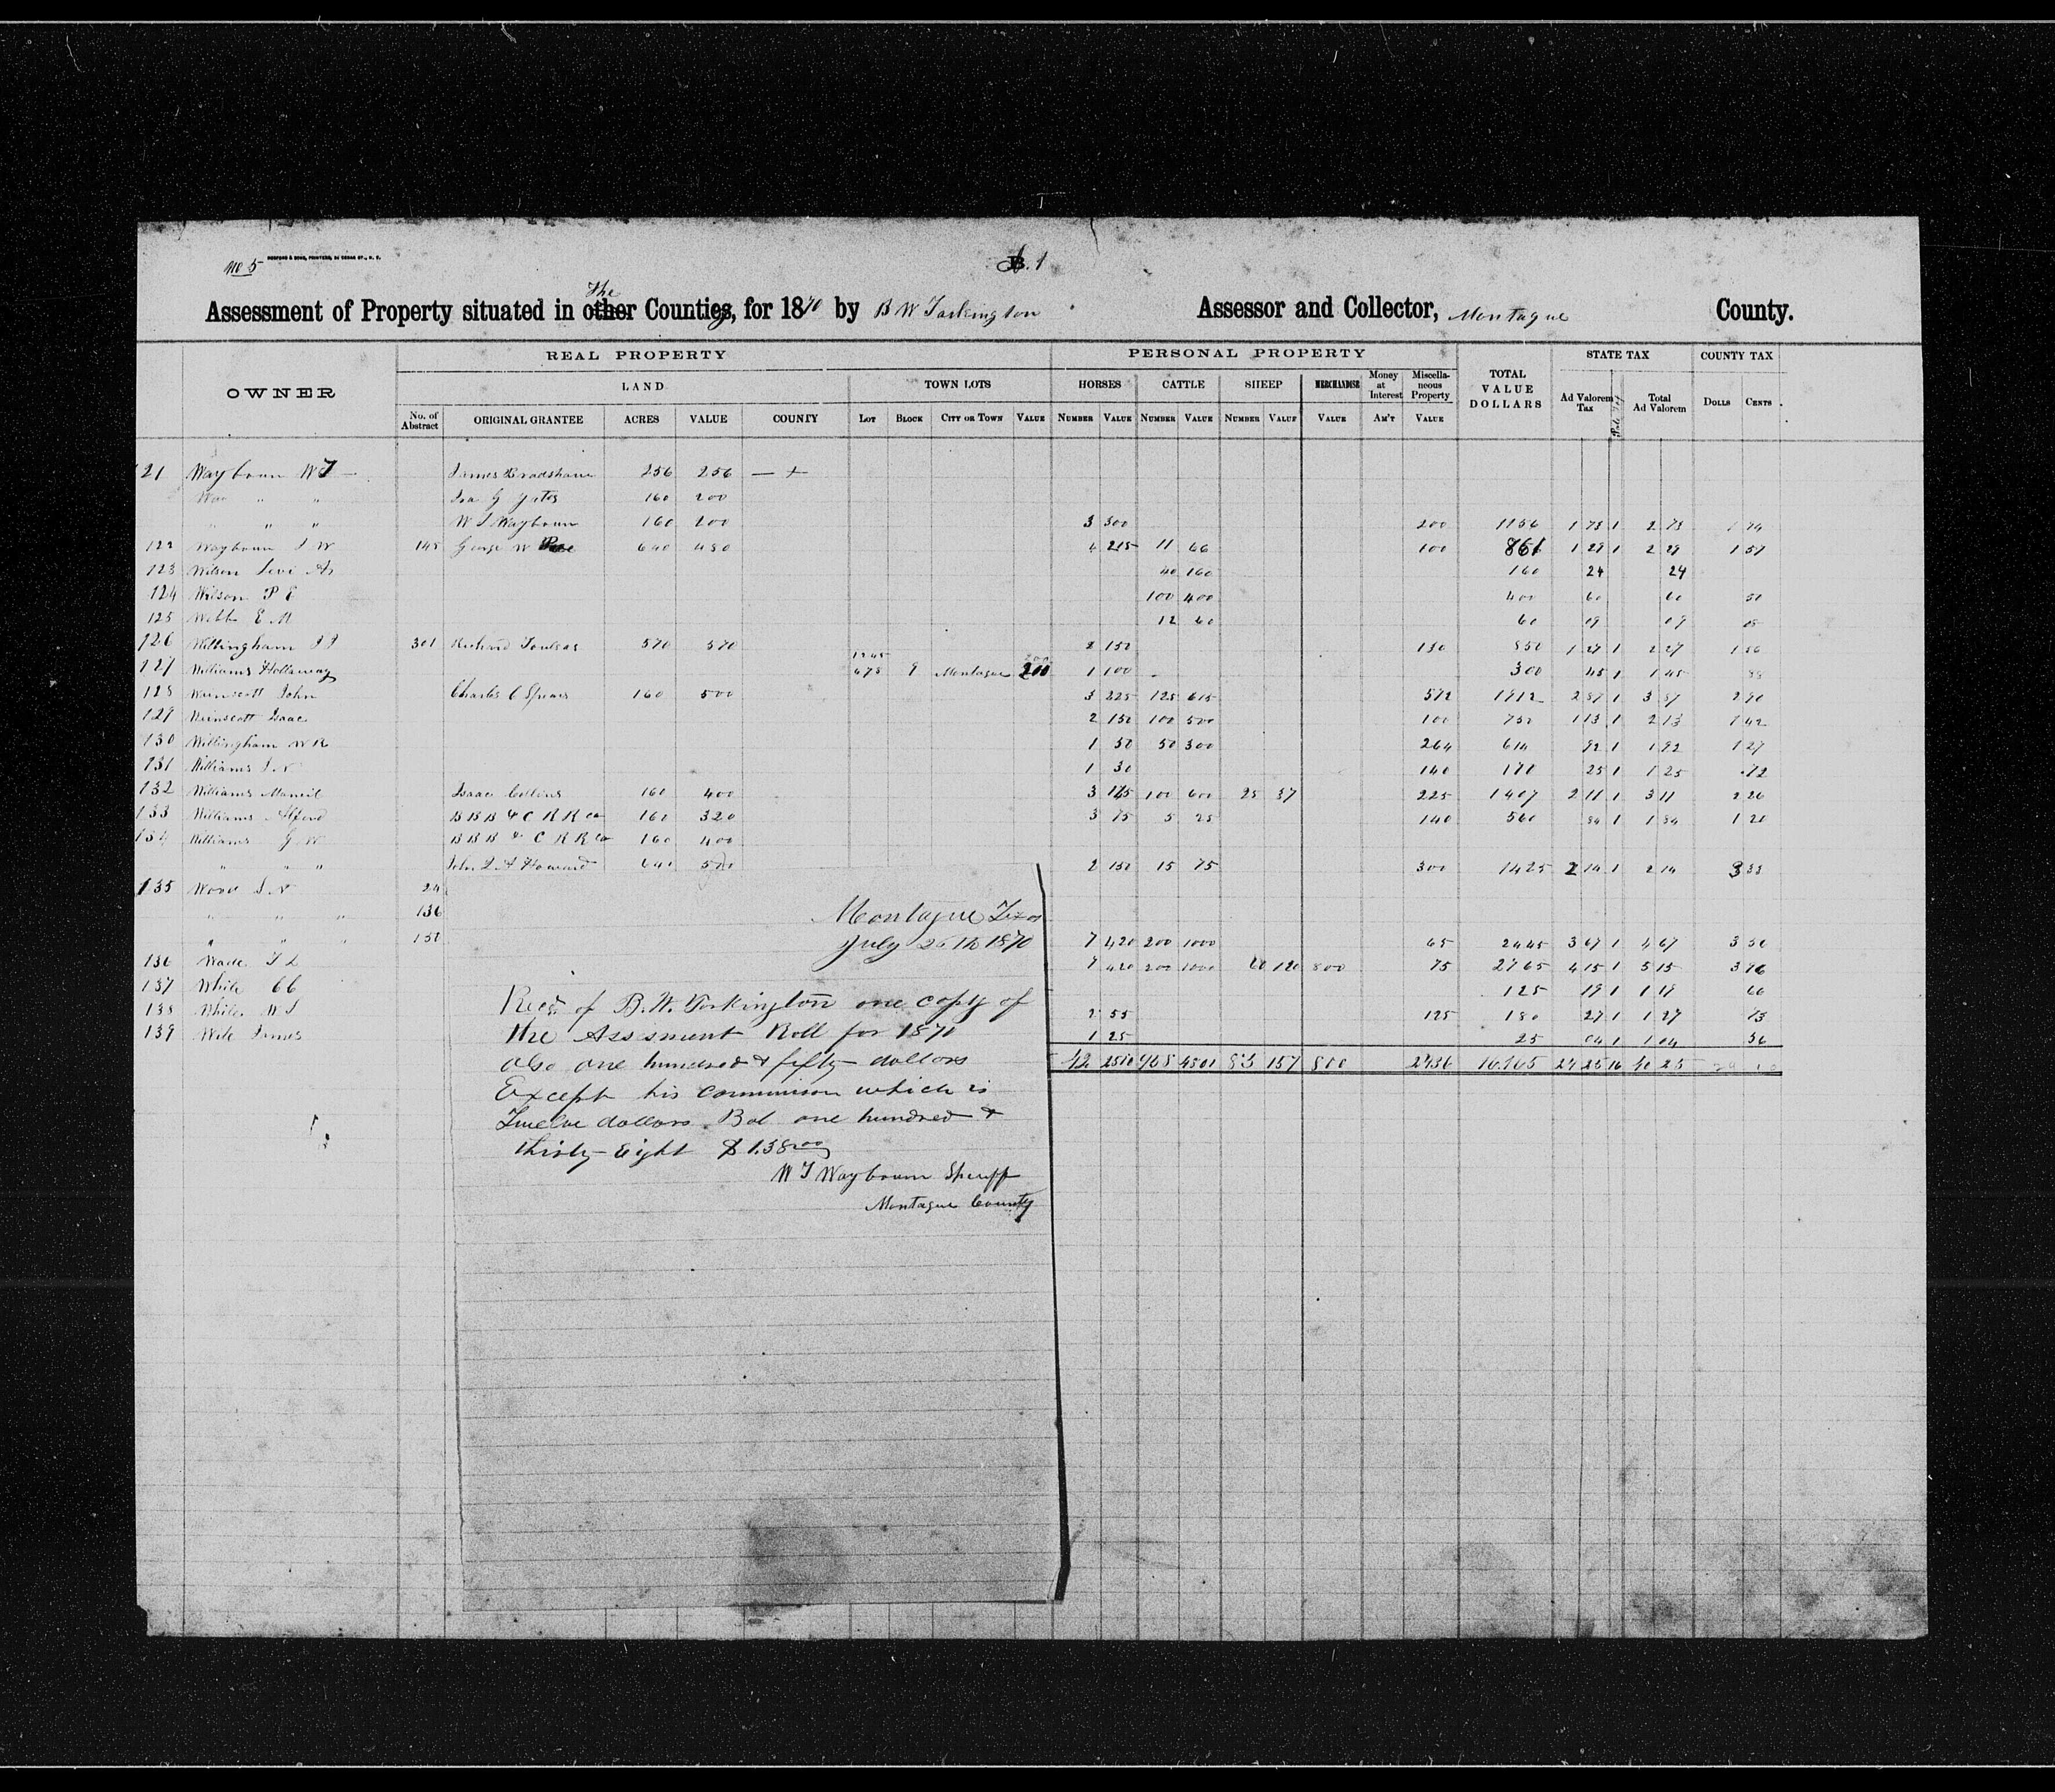 No 5 B. 1
The
Assessment of Property situated in other Counties, for 1870 by B W Tarkington Assessor and Collector, Montague County.
REAL PROPERTY PERSONAL PROPERTY STATE TAX COUNTY TAX
OWNER LAND TOWN LOTS HORSES CATTLE SHEEP MERCHANDISE Money at Interest Miscellaneous Property TOTAL VALUE DOLLARS Ad Valorem Tax Total Ad Valorem DOLLS CENTS
No. of Abstract ORIGINAL GRANTEE ACRES VALUE COUNTY LOT BLOCK CITY OR TOWN VALUE NUMBER VALUE NUMBER VALUE NUMBER VALUE VALUE AM'T VALUE
121 Waybourn W T James Bradshaw 256 256
" " Isa G Yates 160 200
" " " W T Waybourn 160 200 3 300 200 1156 1 73 1 2 73 1 74
122 Waybourn J W 145 George W 640 480 4 215 11 66 100 861 1 29 1 2 29 1 57
123 Wilson Levi 40 160 160 24 24
124 Wilson P E 100 400 400 60 60 50
125 Webb E M 12 60 60 09 09
126 Willingham J J 301 Richard 570 570 2 150 130 850 1 27 1 2 27 1 56
1245 200
127 Williams Hollaway 678 9 Montague 200 1 100 300 45 1 1 45 88
128 Wainscott John Charles C Spears 160 500 3 225 125 615 572 1912 2 87 1 3 87 2 90
129 Wainscott Isaac 2 150 100 500 100 750 1 13 1 2 13 1 42
130 Willingham W R 1 50 50 300 264 614 92 1 1 92 1 27
131 Williams J N 1 30 140 170 25 1 1 25 .72
132 Williams Isaac Collins 160 400 3 145 100 600 25 37 225 1407 2 11 1 3 11 2 26
133 Williams Alford B B B & C R R Co 160 320 3 75 5 25 140 560 84 1 1 84 1 20
134 Williams G W B B B & C R R Co 160 400
" " " John L A Howard 640 500 2 150 15 75 300 1425 2 14 1 2 14 3 33
135 Wood J N 24
" " " 136
" " " 150 7 420 200 1000 65 2445 3 67 1 4 67 3 50
136 Wade T L 7 420 200 1000 60 120 800 75 2765 4 15 1 5 15 3 96
137 White C C 125 19 1 1 19 66
138 White W T 2 55 125 180 27 1 1 27 73
139 Wile James 1 25 25 04 1 1 04 36
42 2510 968 4501 85 157 800 2436 16165 24 25 16 40 25
Montague Texas
July 26th 1870
Recd. of B. W. Tarkington one copy of
the Assessment Roll for 1870
also one hundred & fifty dollars
Except his commison which is
Twelve dollars. Bal one hundred &
thirty-eight $138.00
W T Waybourn Sheriff
Montague County